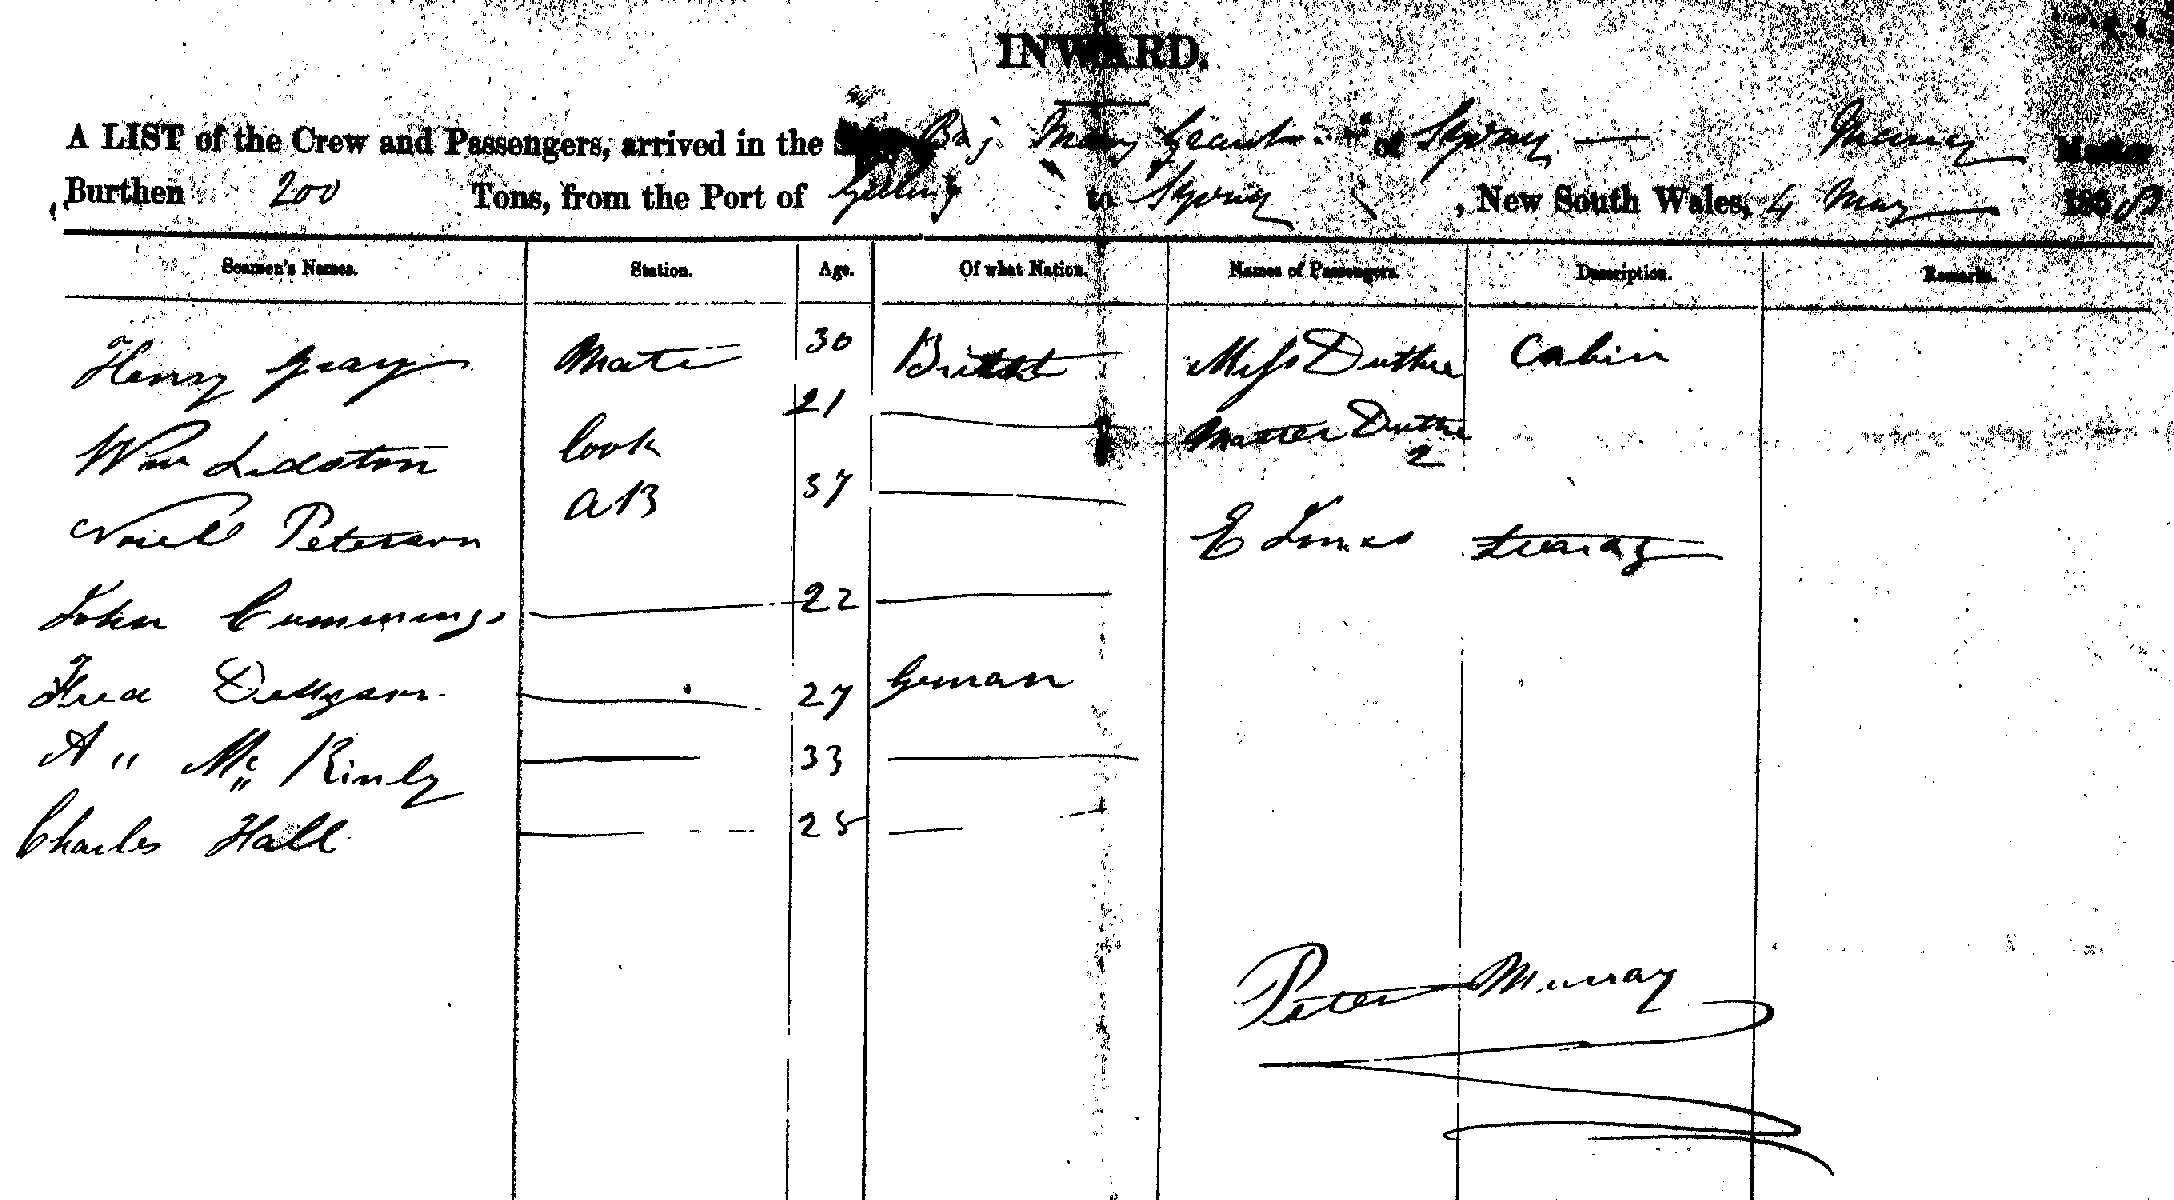 INWARD.
A LIST of the Crew and Passengers, arrived in the Brig Mary Grant of Sydney — Murray Master
Burthen 200 Tons, from the Port of to Sydney, New South Wales, 4 May 1858
Seamen's Names. Station. Age. Of what Nation. Names of Passengers. Description. Remarks.
Henry Gray Mate 30 British Miss Duthie Cabin
Wm Lidston Cook 21 Master Duthie
2
Peterson AB 37
E Jones Steerag
John Cummings 22
Fred 27 German
A " Mc Kinly 33
Charles Hall 25
Peter Murray